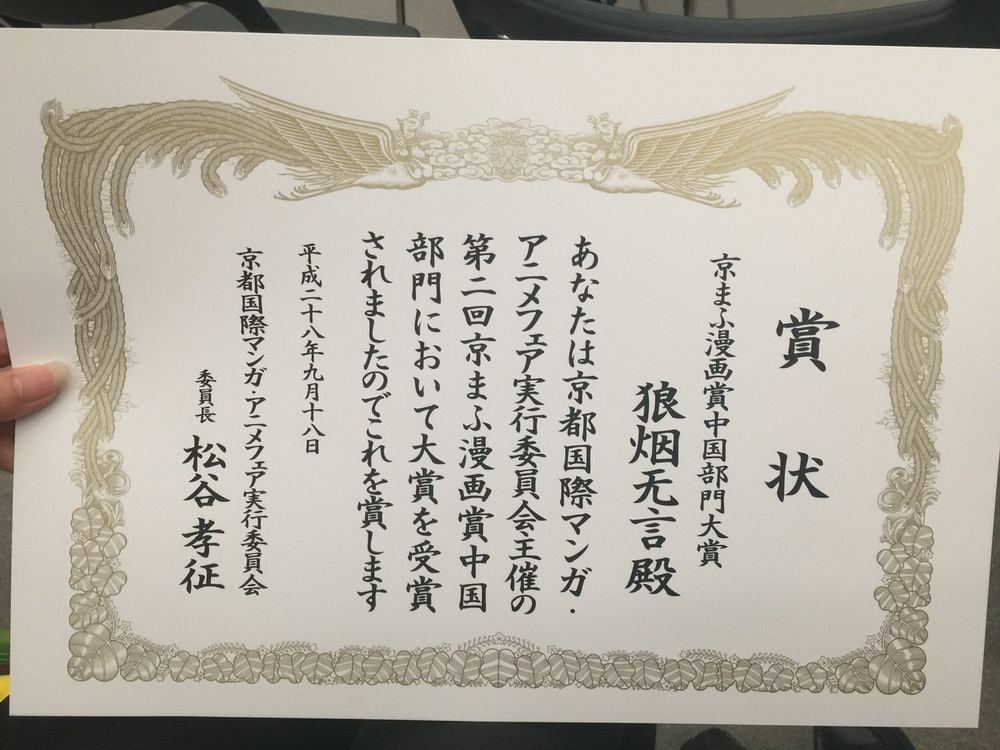 賞状
京まふ漫画賞中国部門大賞
狼烟无言殿
あなたは京都国際マンガ・
アニメフェア実行委員会主催の
第二回京まふ漫画賞中国
部門において大賞を受賞
されましたのでこれを賞します
平成二十八年九月十八日
京都国際マンガ・アニメフェア実行委員会
委員長 松谷孝征